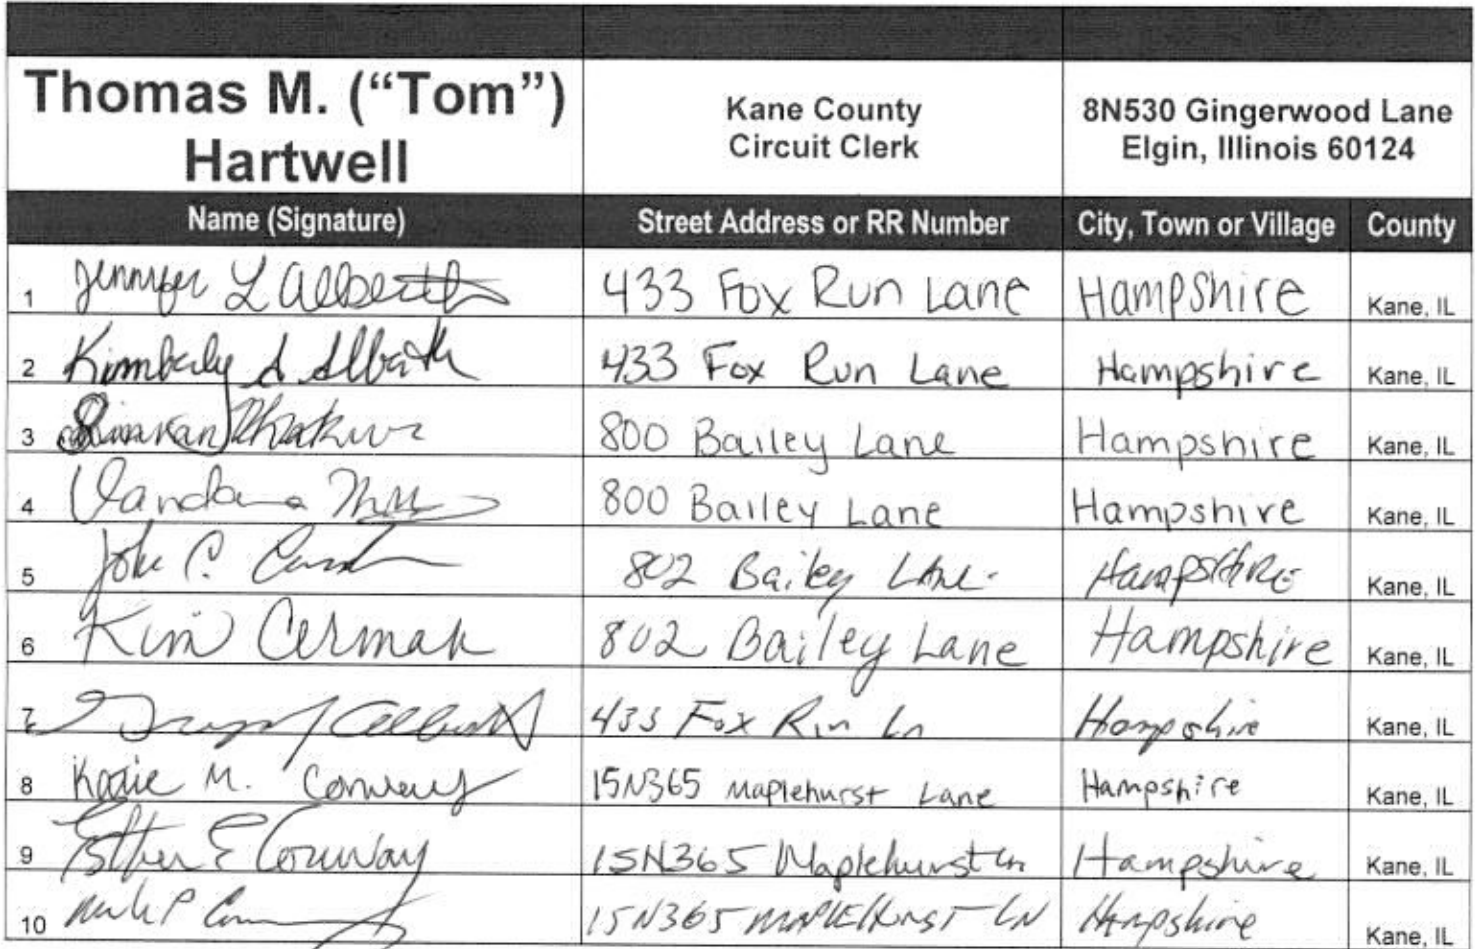 Thomas M. ("Tom") Hartwell
Kane County Circuit Clerk
8N530 Gingerwood Lane Elgin, Illinois 60124
Name (Signature) Street Address or RR Number City, Town or Village County
1 Jennifer L Alberth 433 Fox Run Lane Hampshire Kane, IL
2 Kimberly A Alberth 433 Fox Run Lane Hampshire Kane, IL
3 800 Bailey Lane Hampshire Kane, IL
4 Vandana 800 Bailey Lane Hampshire Kane, IL
5 John C. 802 Bailey Lane Hampshire Kane, IL
6 Kim Cermak 802 Bailey Lane Hampshire Kane, IL
7 433 Fox Run Ln Hampshire Kane, IL
8 Katie M. Conway 15N365 Maplehurst Lane Hampshire Kane, IL
9 Esther E Conway 15N365 Maplehurst Ln Hampshire Kane, IL
10 15N365 MAPLEHURST LN Hampshire Kane, IL